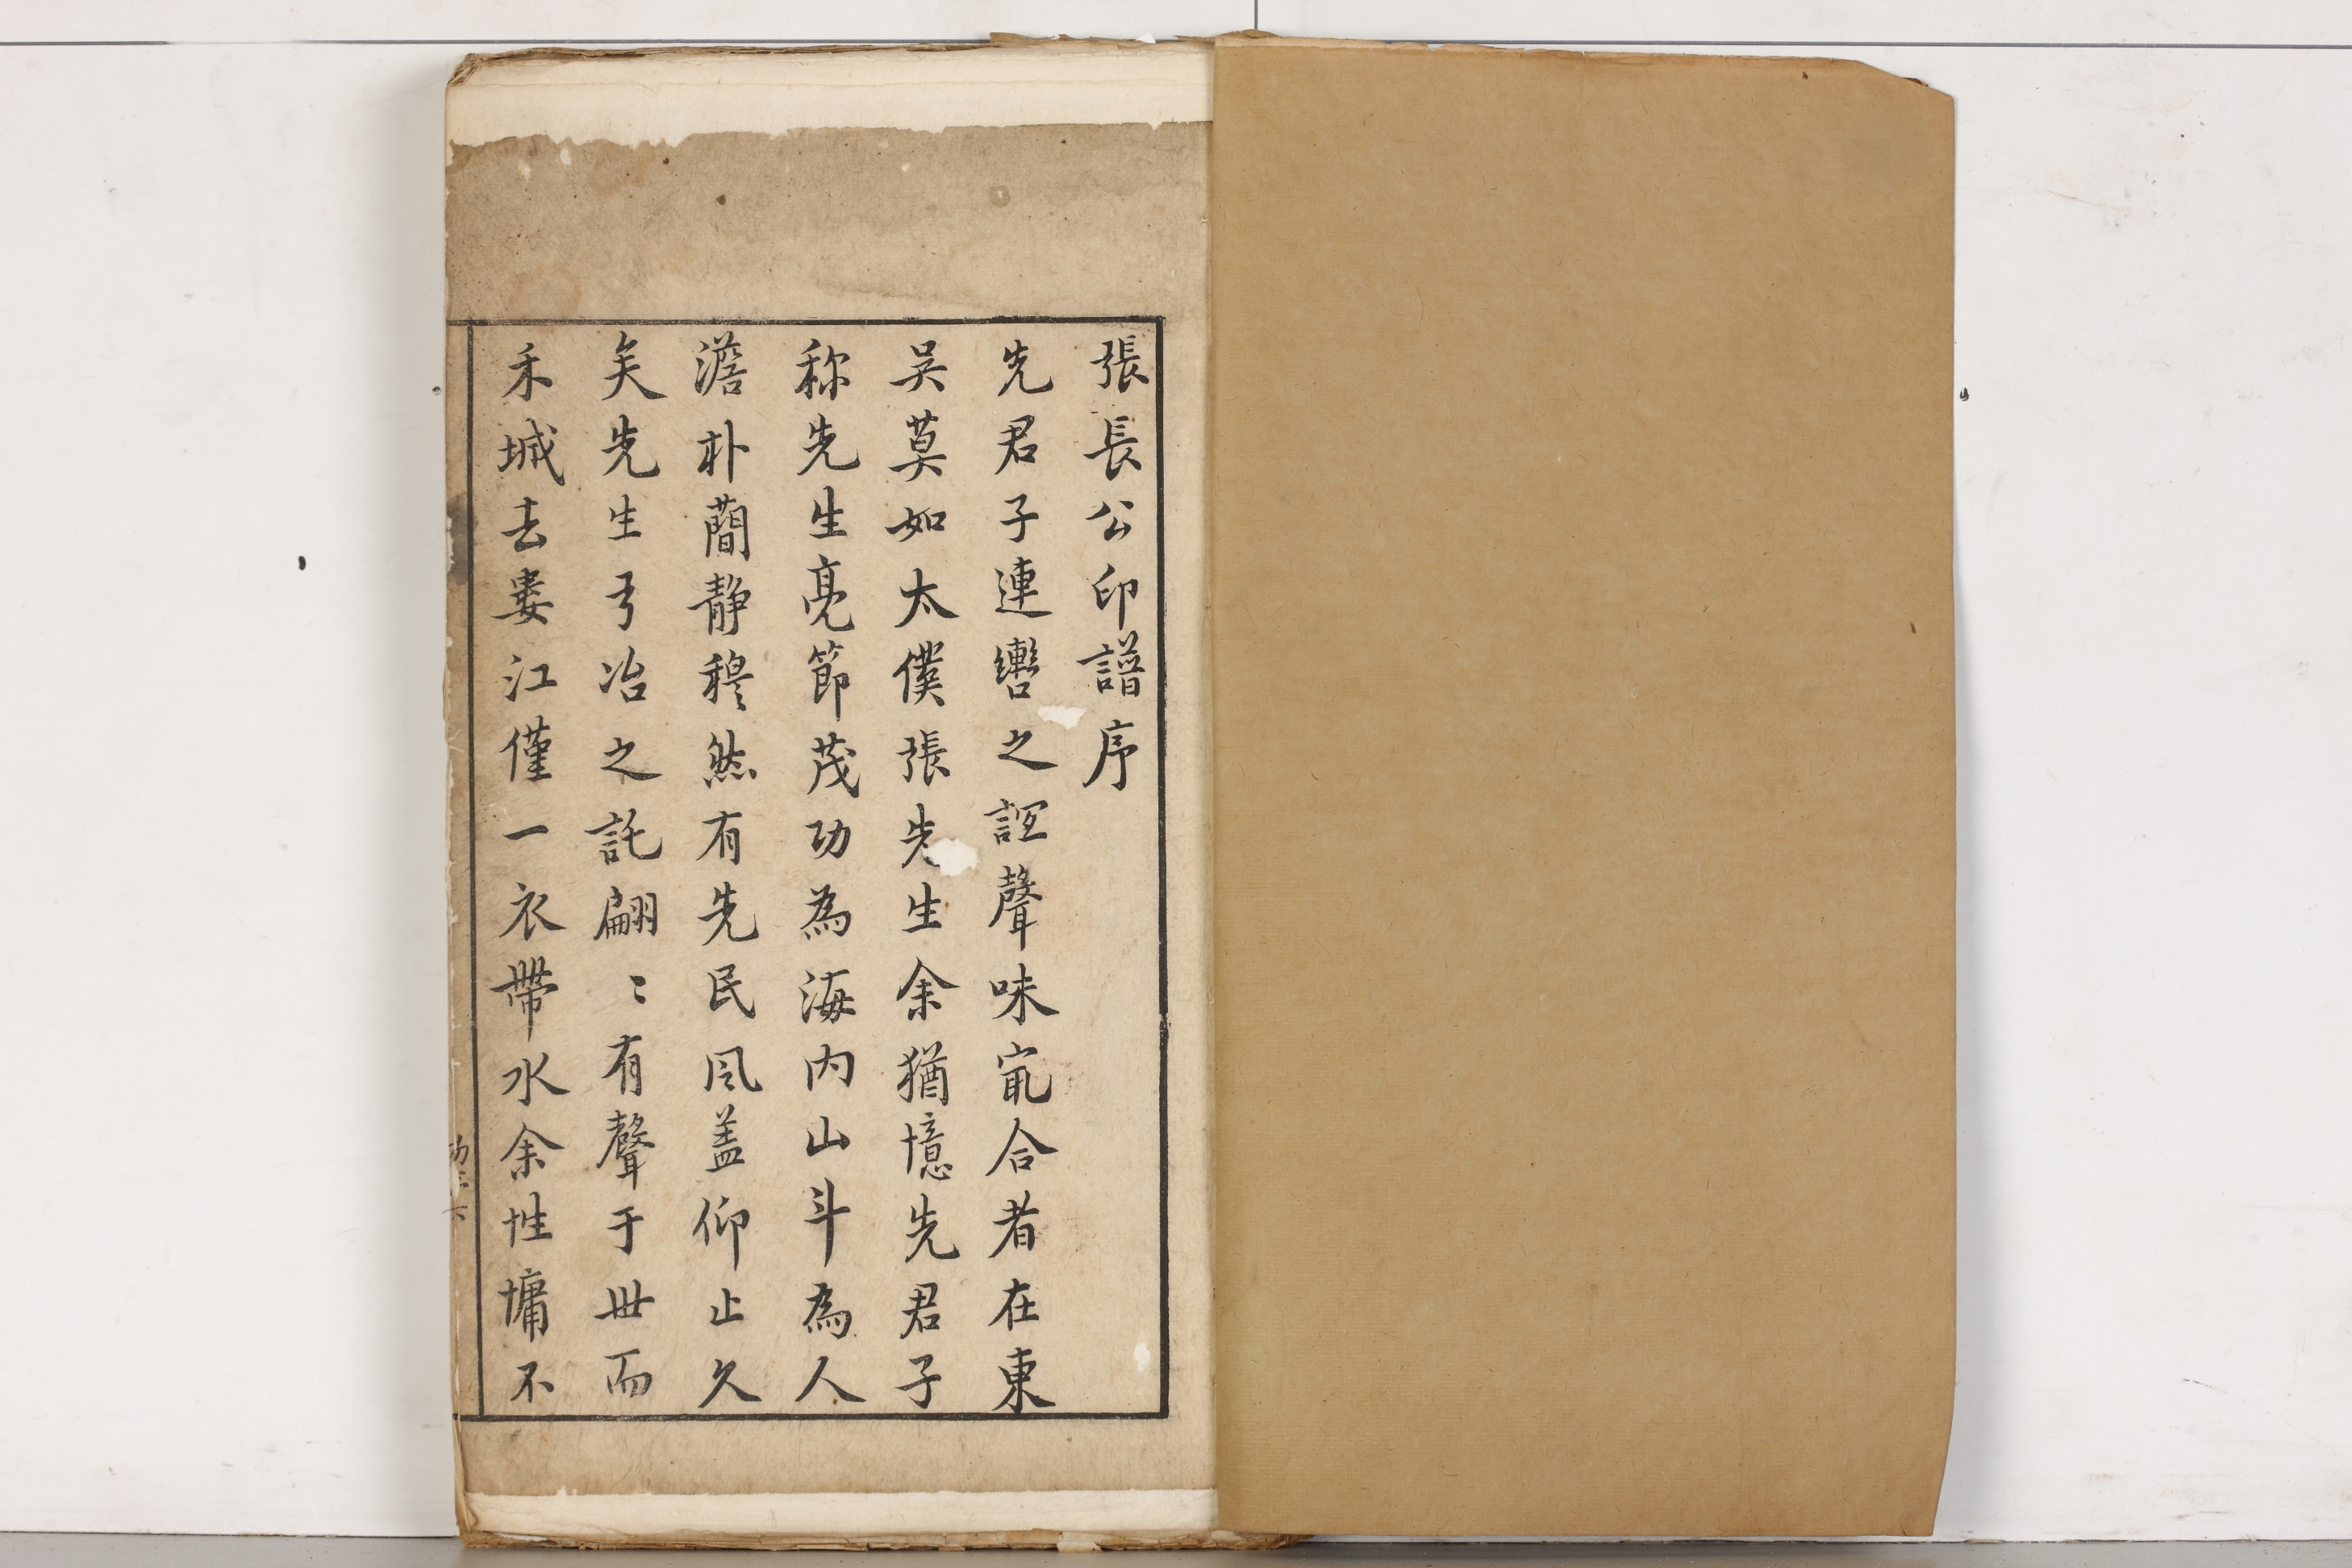 張長公印譜序
先君子連轡之誼聲味㝡合者在東
吳莫如太僕張先生余猶憶先君子
称先生亮節茂功為海内山斗為人
澹朴蕳静穆然有先民風盖仰止久
矣先生弓冶之託翩〻有聲于世而
禾城去婁江僅一衣帶水余性墉不